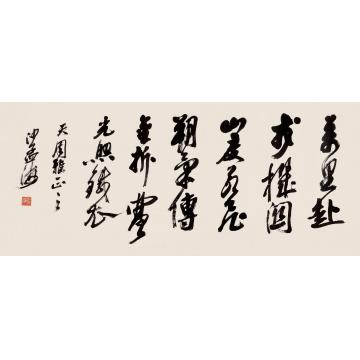 萬里赴
戎機關
山度若飛
朔氣傳
金柝寒
光照鐵衣
雅正
沙孟海